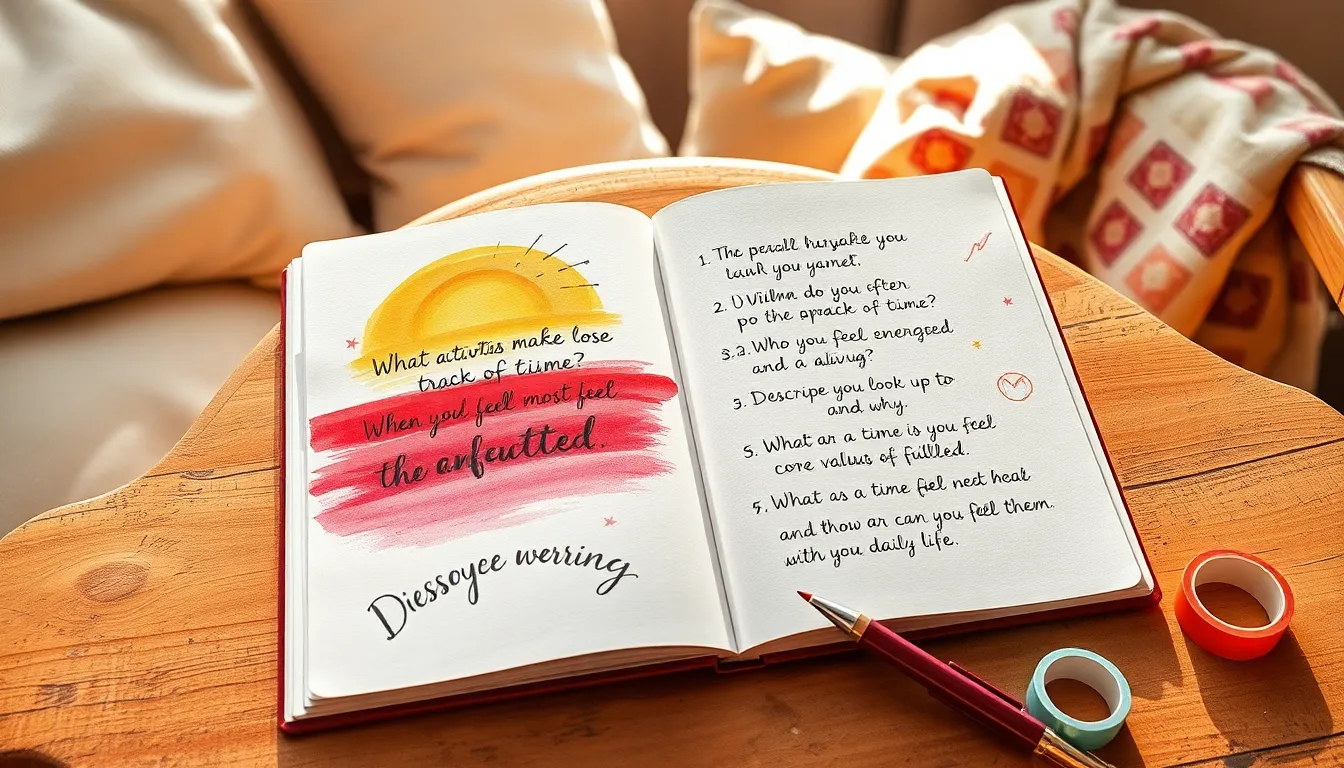 What activitıs make lose
track of tiıme?
When you feel most feel
the arfcutted.
Diessoyee werring
1. The perall huryake you
lauR you yamet.
2. UViılım do you ɛften
po the aprack of tiume?
3.2. Who you feel energced
and a alivug?
3. Descripe you look up to
and why.
5. What ar a time is you feel
core valuıs of fulled.
5. What as a time feel nect heal
and thow ar can you feel them.
with you daily life.